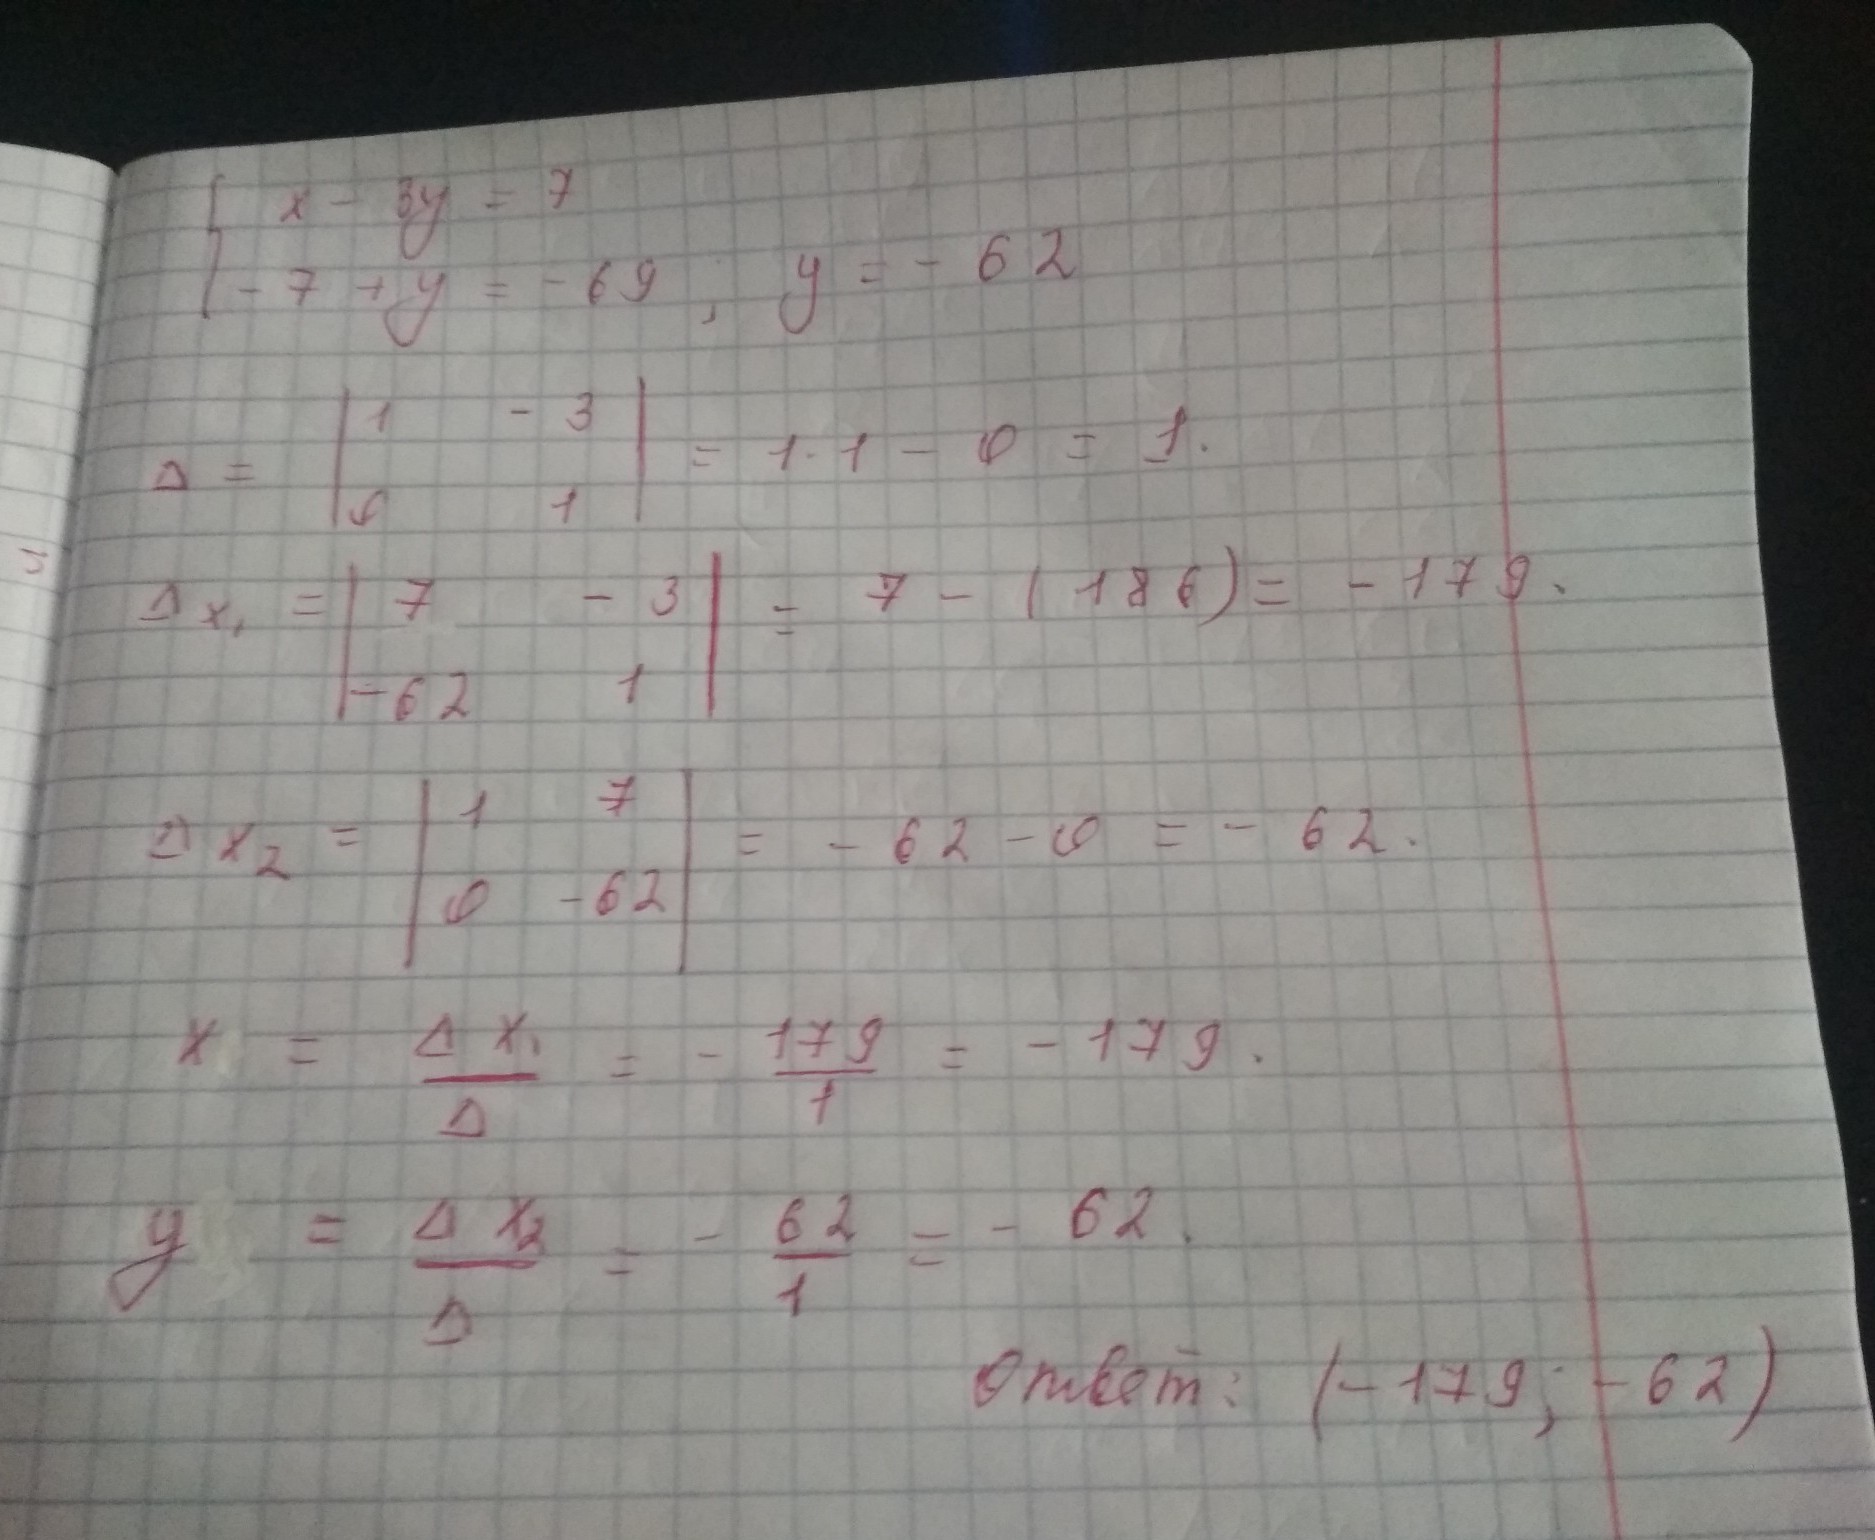 x - 3y = 7
-7 + y = -69, y = -62
Δ = | 1 -3 | = 1·1 - 0 = 1.
0 1
Δx₁ = | 7 -3 | = 7 - (186) = -179.
-62 1
Δx₂ = | 1 7 | = -62 - 0 = -62.
0 -62
x = Δx₁ / Δ = - 179 / 1 = -179.
y = Δx₂ / Δ = - 62 / 1 = -62.
Ответ: (-179; -62)